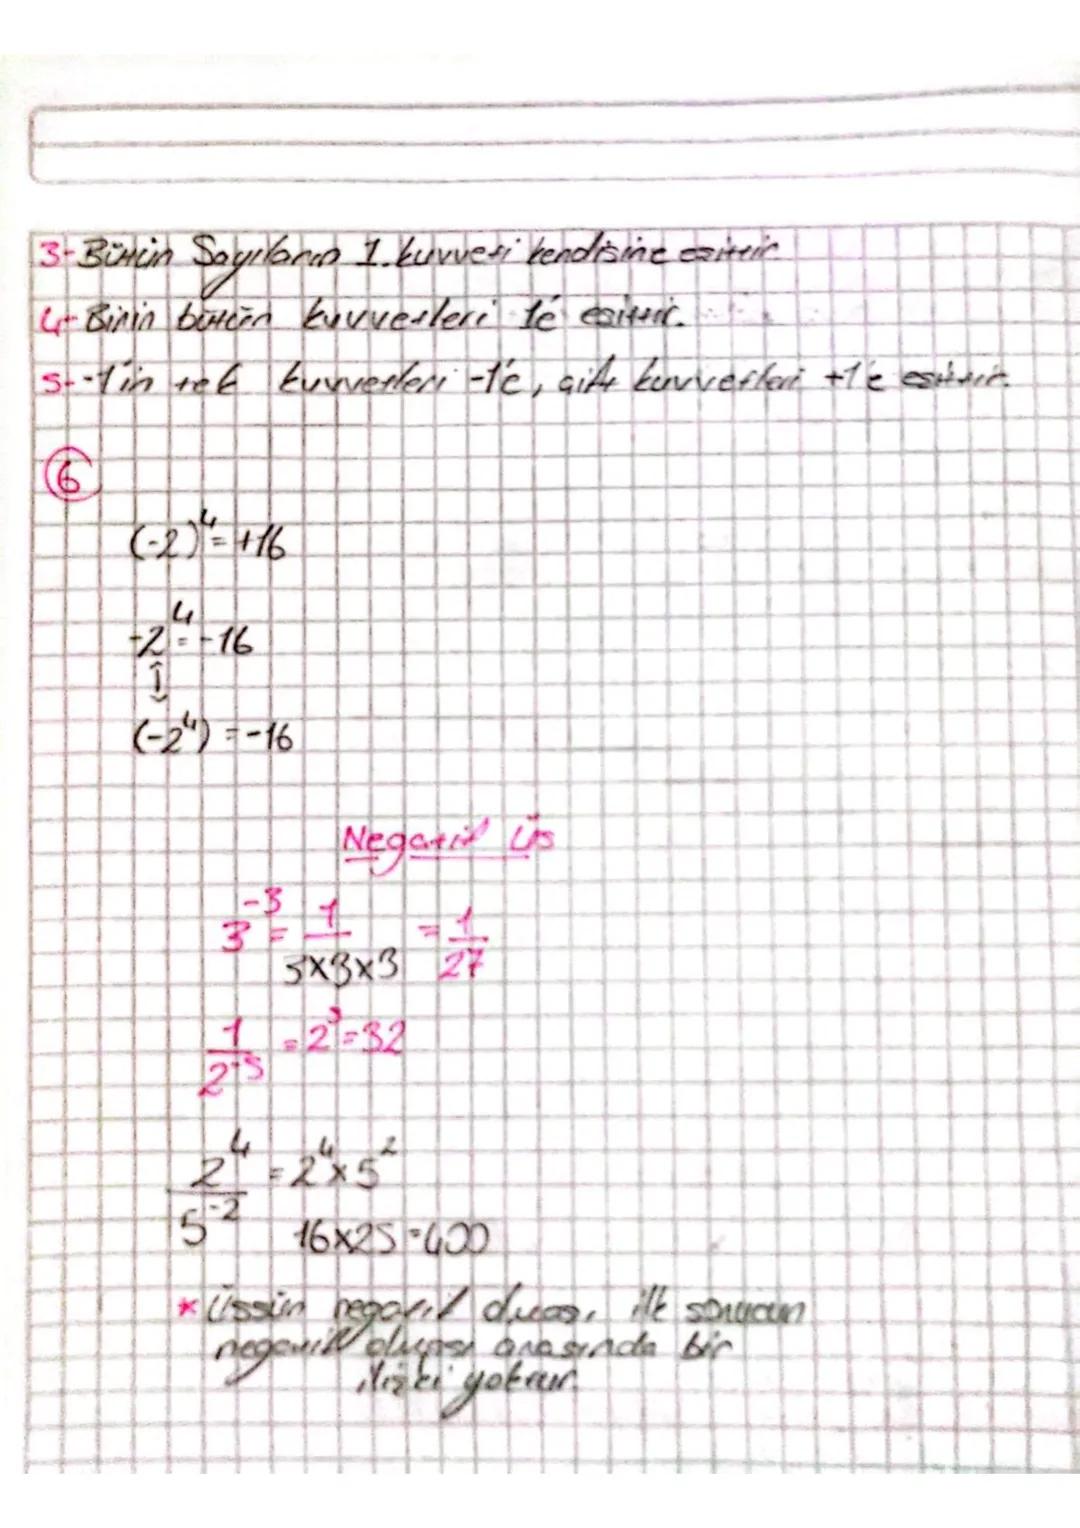 3- Bütün Sayıların 1. kuvveti kendisine eşittir.
4- Birin bütün kuvvetleri 1'e eşittir.
5- -1'in tek kuvvetleri -1'e, çift kuvvetleri +1'e eşittir.
6
(-2)⁴ = +16
-2⁴ = -16
(-2⁴) = -16
Negatif Üs
3⁻³ = 1/3x3x3 = 1/27
1/2⁻⁵ = 2⁵ = 32
2⁴/5⁻² = 2⁴ x 5²
16x25 = 400
* Üssün negatif olması, ile sonucun
negatif olması arasında bir
ilişki yoktur.